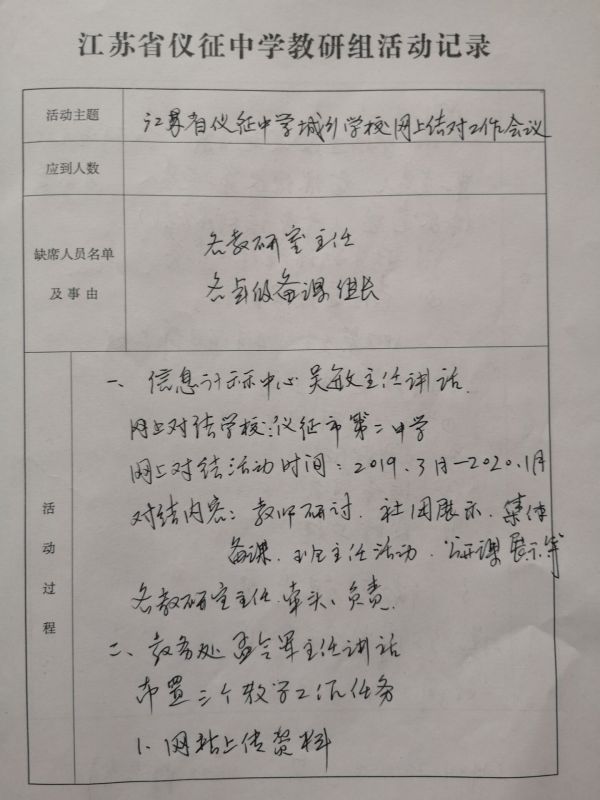 江苏省仪征中学教研组活动记录
活动主题
江苏省仪征中学城乡学校网上结对工作会议
应到人数
缺席人员名单
及事由
各教研室主任
各年级备课组长
活动过程
一、信息计示中心吴敏主任讲话.
网上对结学校:仪征市第二中学
网上对结活动时间:2019.3月—2020.1月
对结内容:教师研讨、社团展示、集体
备课、班主任活动、公开课展示等
各教研室主任牵头、负责.
二、教务处孟令军主任讲话
布置三个教学工作任务
1、网站上传资料